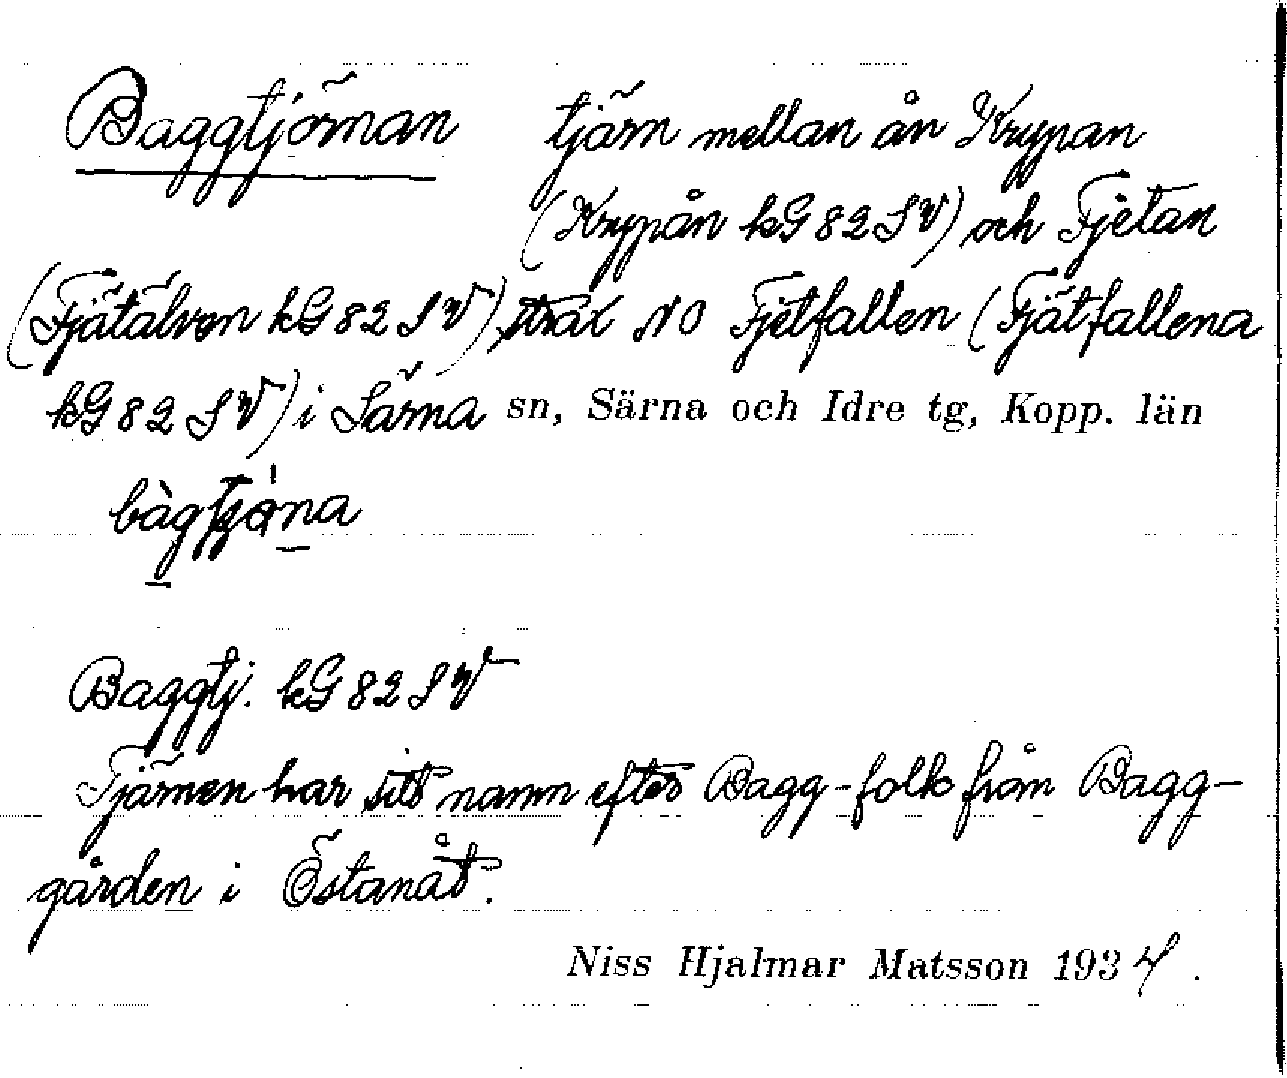 Baggtjörnan tjärn mellan ån Krypan
(Krypån kG 82 SV) och Fjetan
(Fjätälven kG 82 SV) strax NO Fjetfallen (Fjätfallena
kG 82 SV) i Särna sn, Särna och Idre tg, Kopp. län
Baggtj. kG 82 SV
Tjärnen har sitt namn efter Bagg-folk från Bagg-
gården i Östanåt.
Niss Hjalmar Matsson 1934.